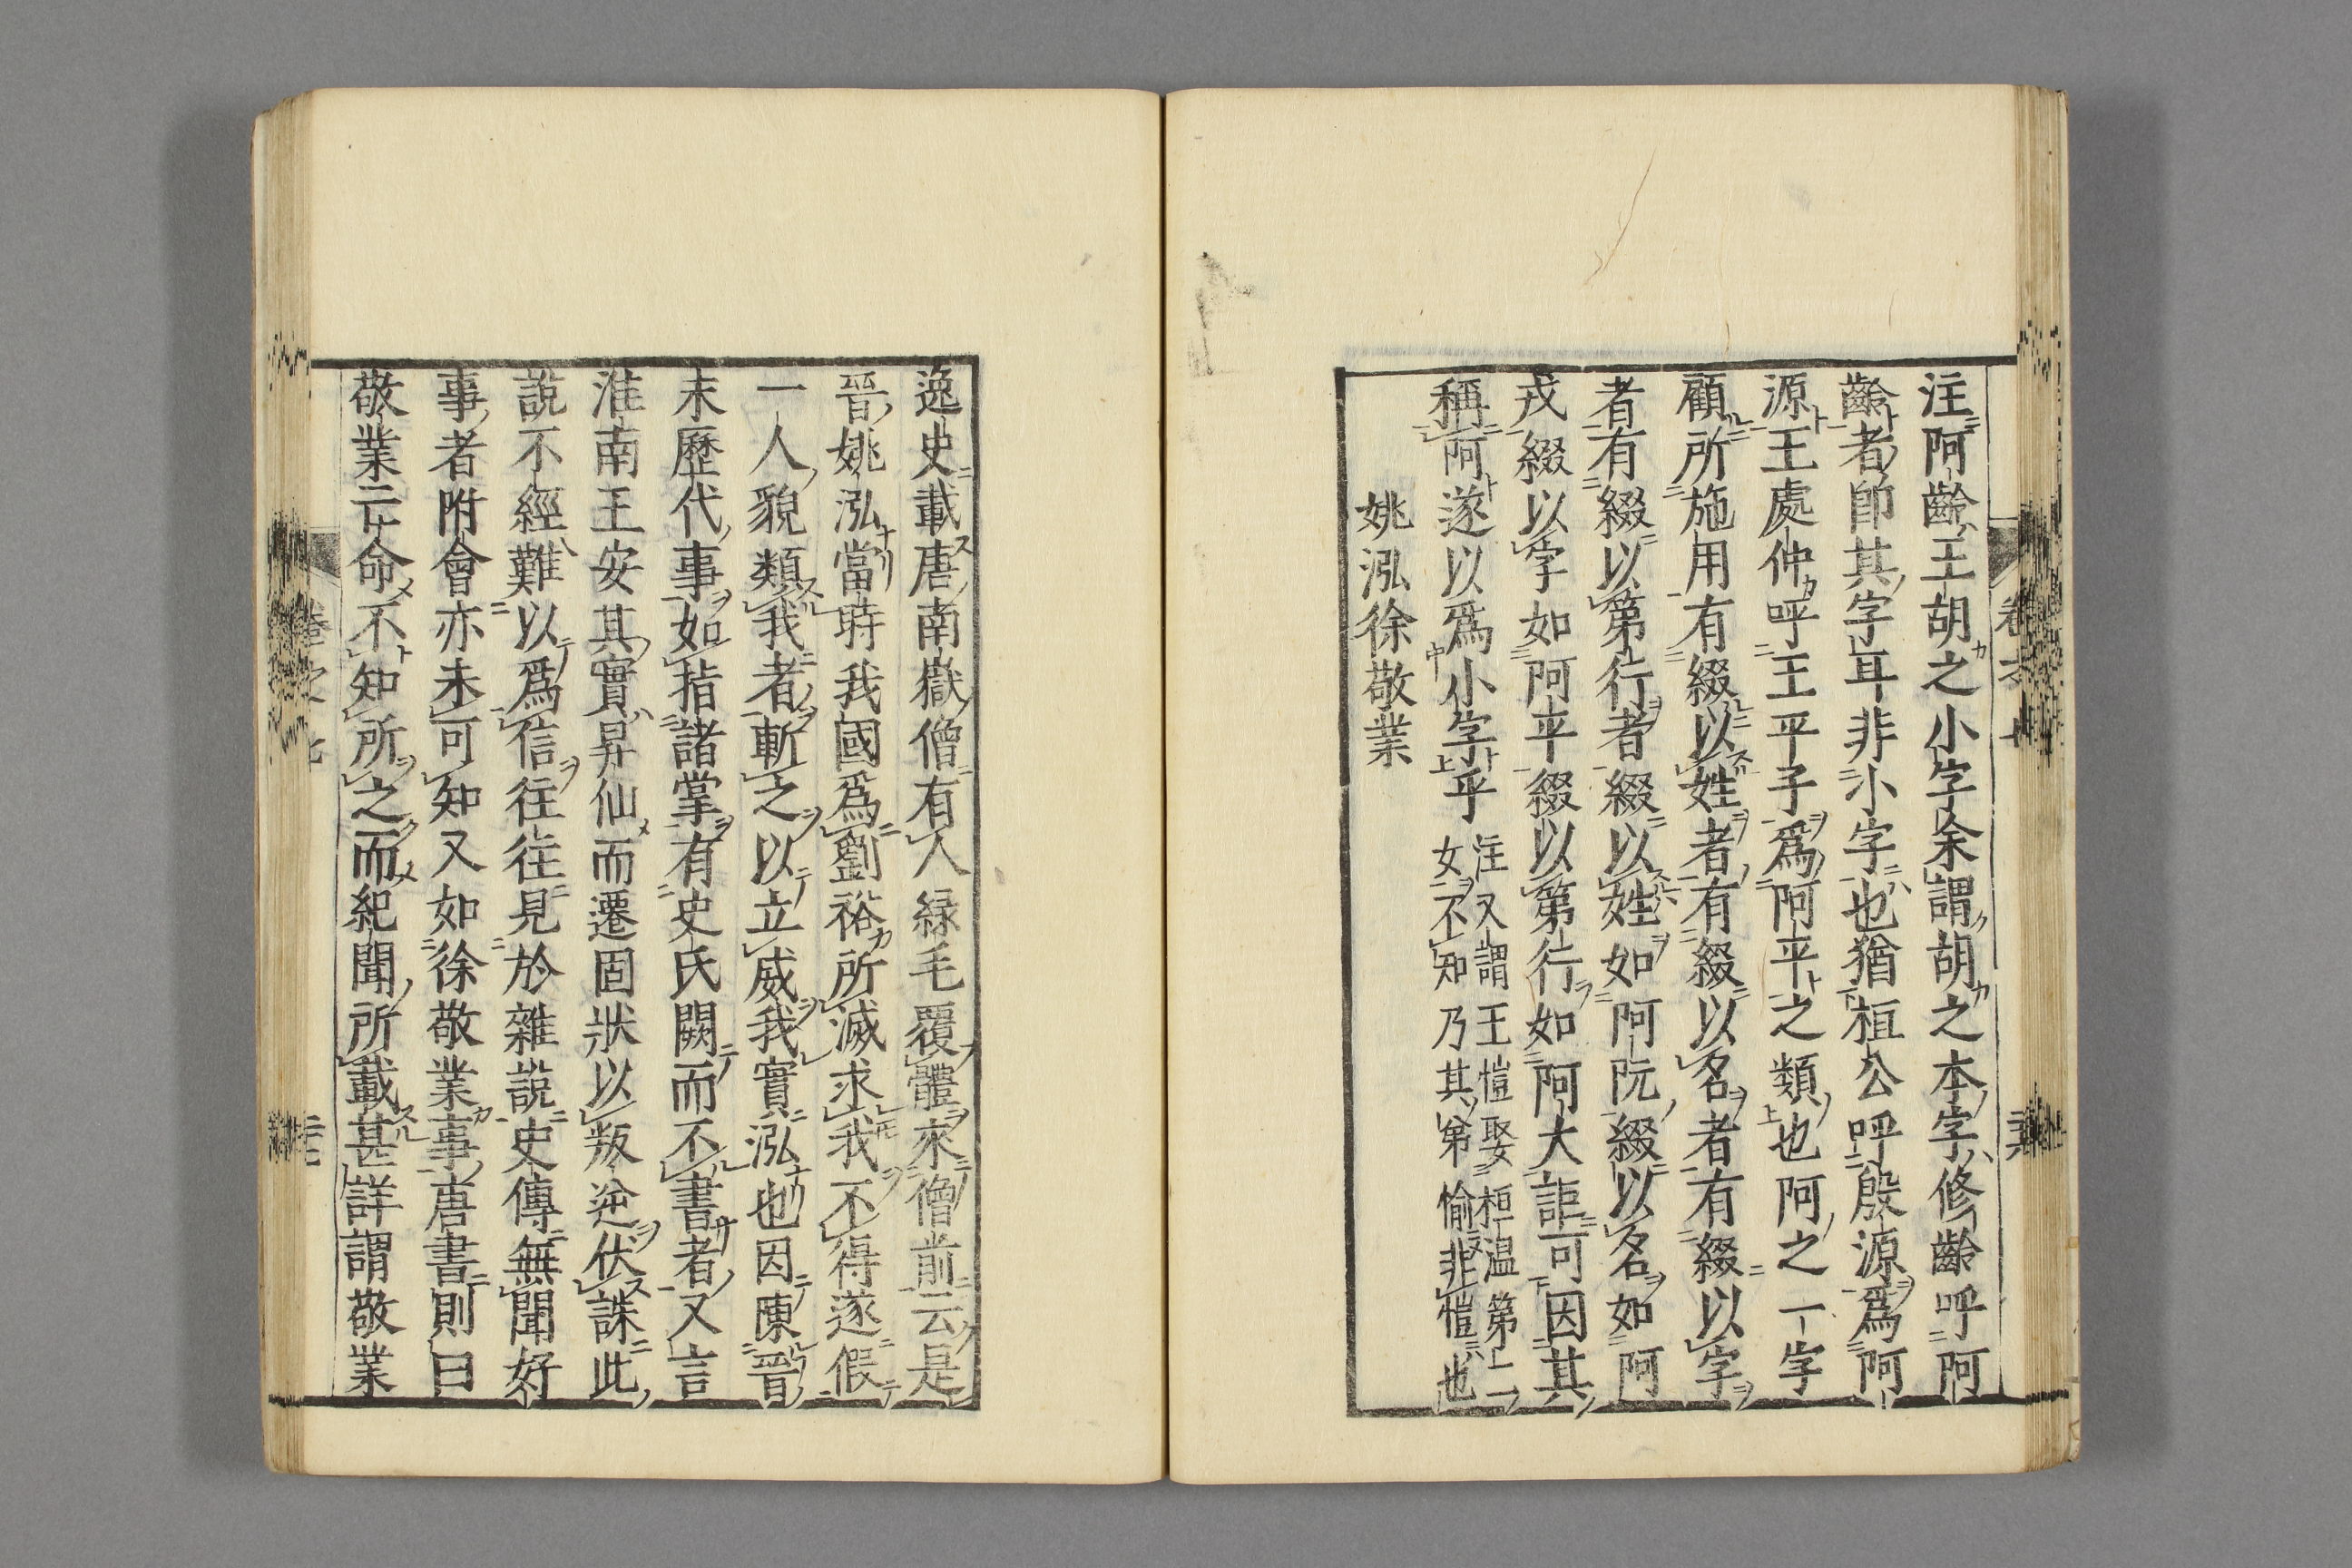 注阿齡王胡之小字余謂胡之本字修齡呼阿
齡者卽其字耳非小字也猶桓公呼殷源爲阿
源王處仲呼王平子爲阿平之類也阿之一字
顧所施用有綴以姓者有綴以名者有綴以字
者有綴以第行者綴以姓如阿阮綴以名如阿
戎綴以字如阿平綴以第行如阿大詎可因其
稱阿遂以爲小字乎
注又謂王愷娶桓温第二
女不知乃其弟愉非愷也
姚泓徐敬業
逸史載唐南嶽僧有人緑毛覆體來僧前云是
晉姚泓當時我國爲劉裕所滅求我不得遂假
一人貌類我者斬之以立威我實泓也因陳晉
末歷代事如指諸掌有史氏闕而不書者又言
淮南王安其實昇仙而遷固狀以叛逆伏誅此
說不經難以爲信往往見於雜說史傳無聞好
事者附會亦未可知又如徐敬業事唐書則曰
敬業亡命不知所之而紀聞所載甚詳謂敬業